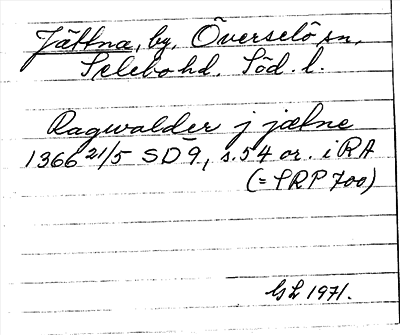 Jättna, by, Överselö sn,
Selebo hd. Söd. l.
Ragwalder j jælne
1366 21/5 SD 9, s. 54 or. i RA
(= SRP 700)
GL 1971.